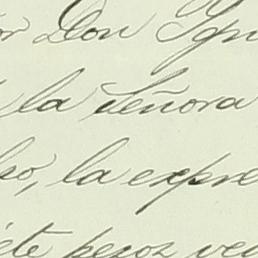 or Don Ign
la Señora
so, la expre
ete pesoz ve